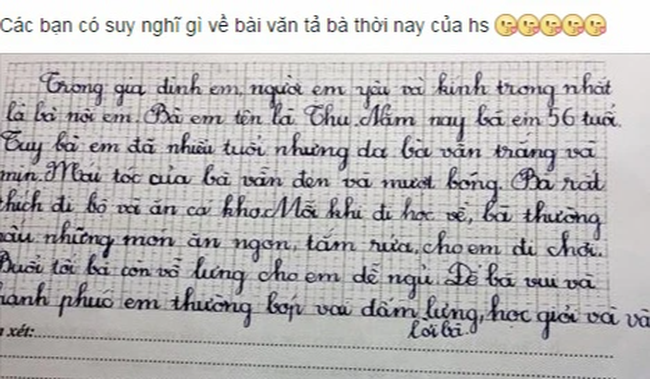 Các bạn có suy nghĩ gì về bài văn tả bà thời nay của hs
Trong gia đình em, người em yêu và kính trọng nhất
là bà nội em. Bà em tên là Thu. Năm nay bà em 56 tuổi.
Tuy bà em đã nhiều tuổi nhưng da bà vẫn trắng và
mịn. Mái tóc của bà vẫn đen và mượt bóng. Bà rất
thích đi bộ và ăn cá kho. Mỗi khi đi học về, bà thường
nấu những món ăn ngon, tắm rửa, cho em đi chơi.
Buổi tối bà còn vỗ lưng cho em dễ ngủ. Để bà vui và
hạnh phuc em thường bóp vai đấm lưng, học giỏi và vâ
lời bà.
xét: